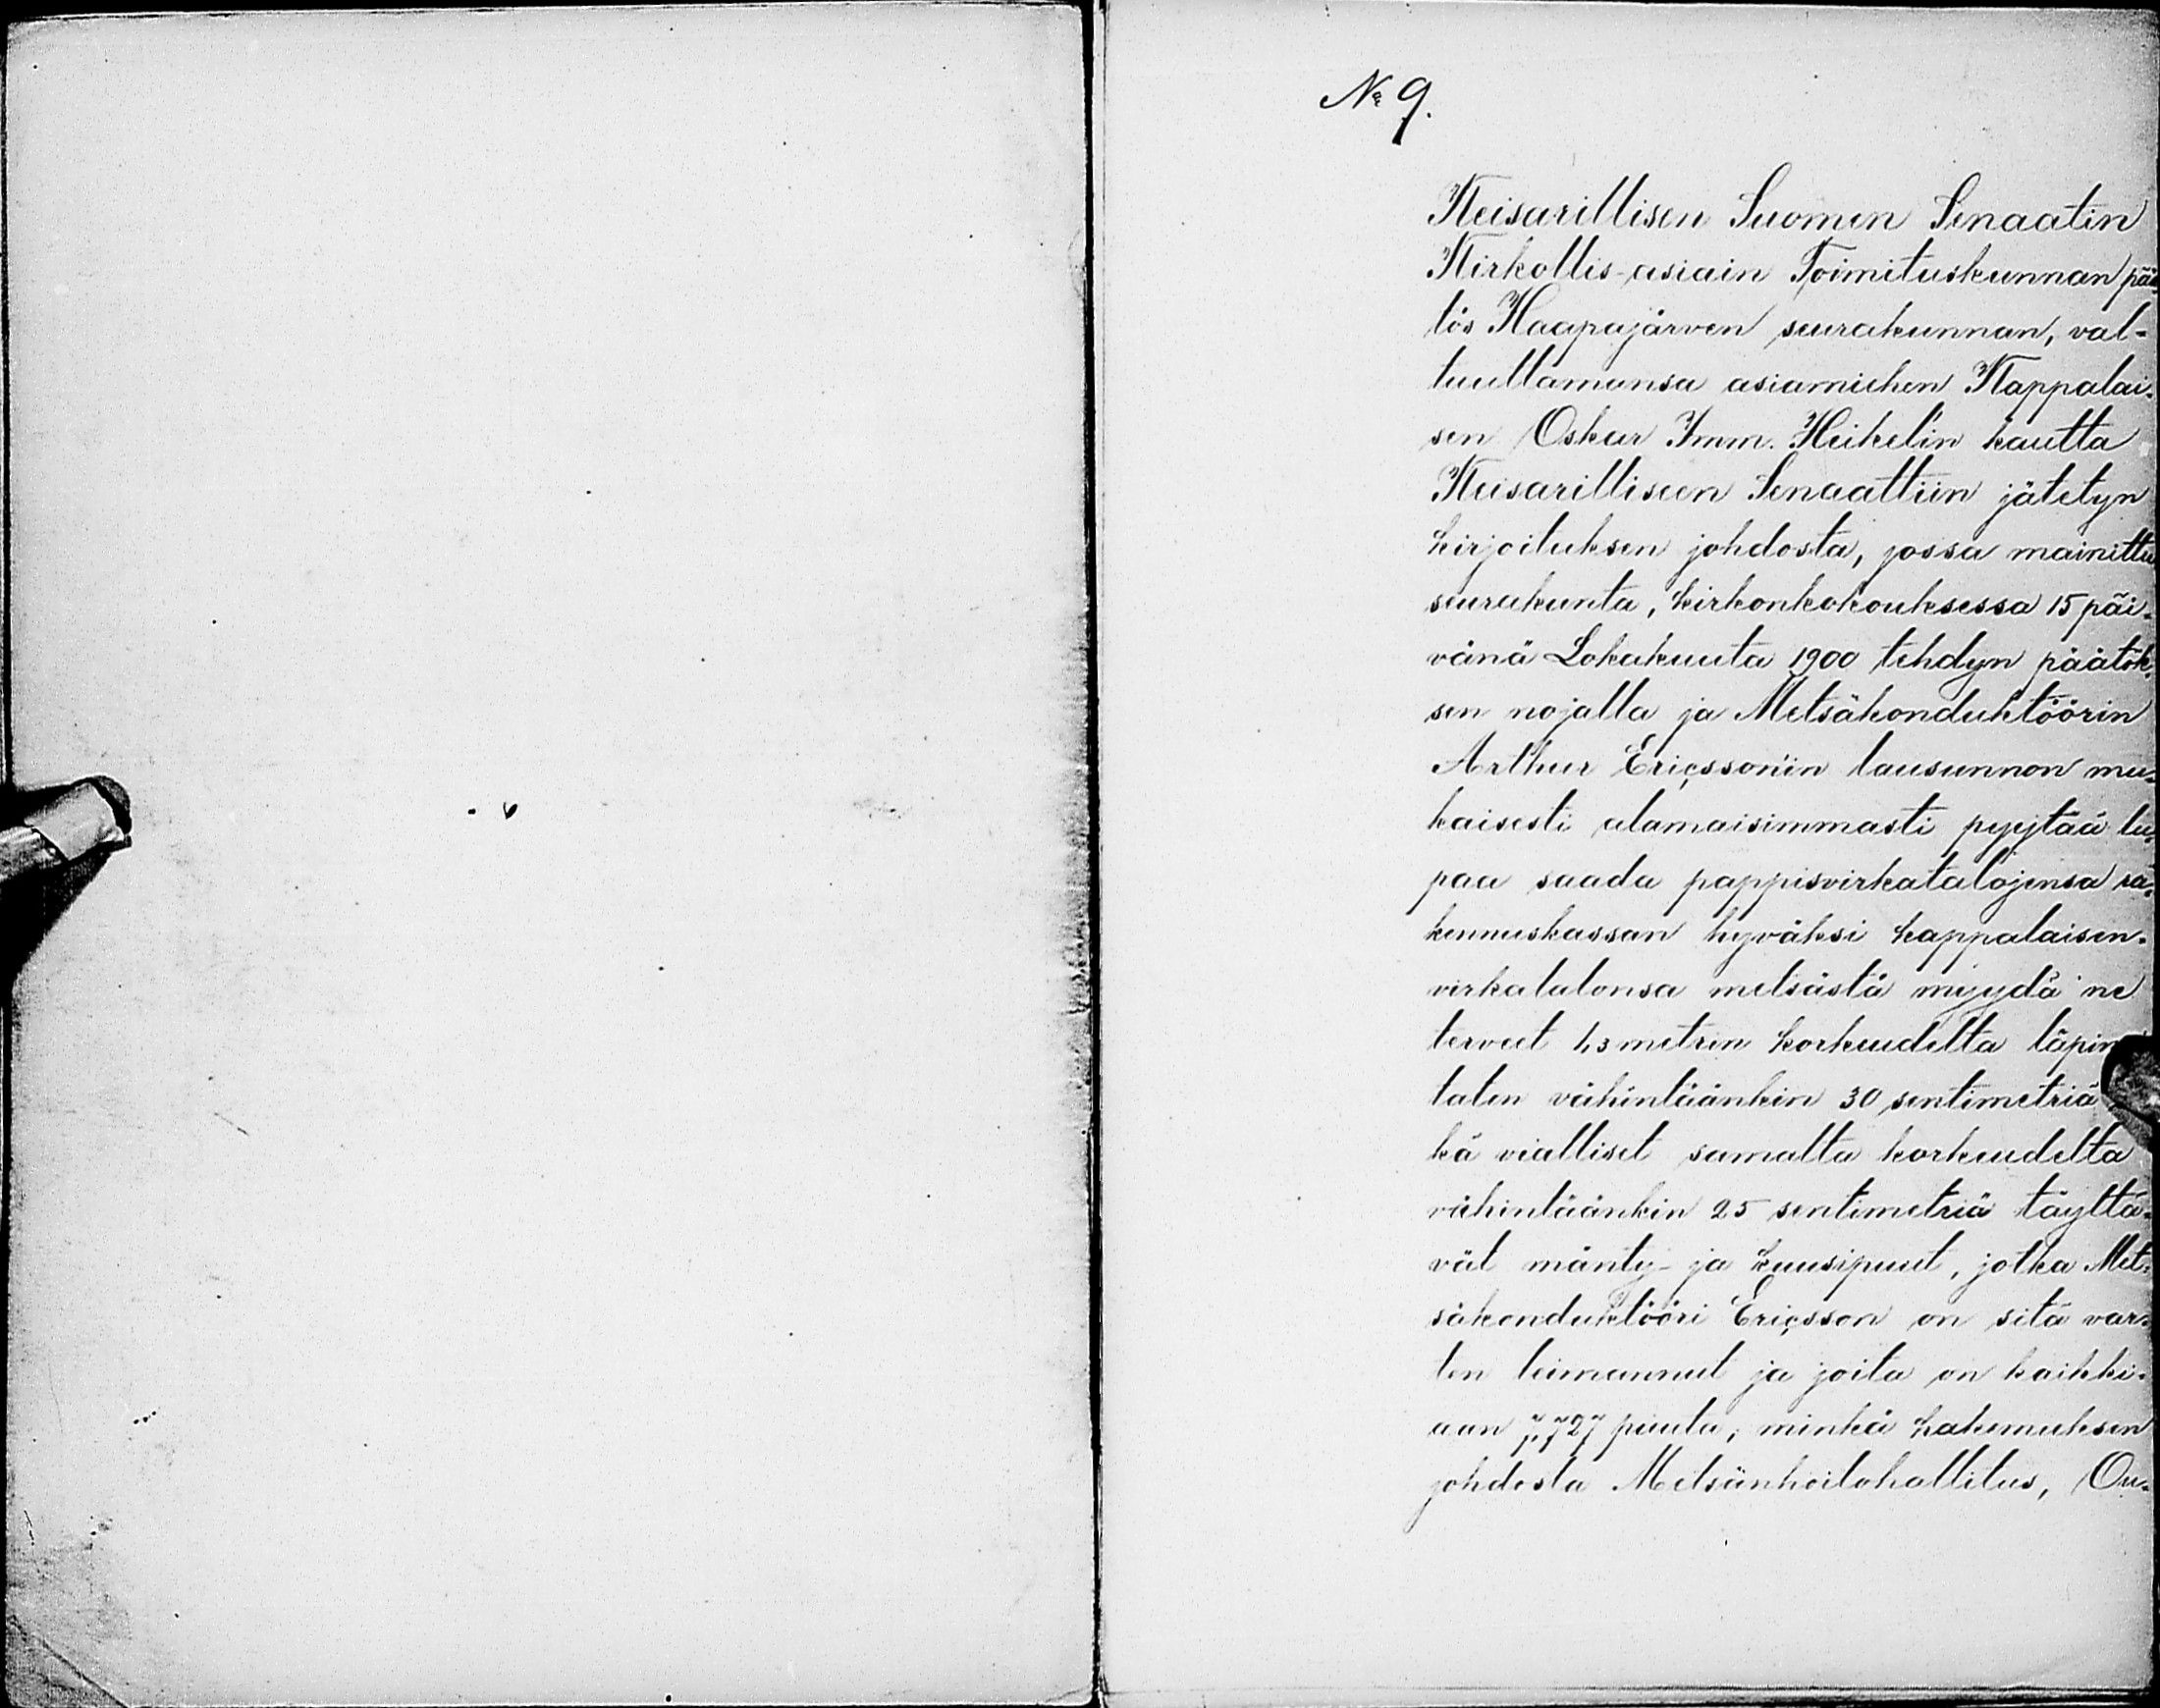 № 9.
Keisarillisen Suomen Senaatin
Kirkollis-asiain Toimituskunnan pää-
tös Haapajärven seurakunnan, val-
tuuttamansa asiamiehen Kappalai-
sen Oskar Imm. Heikel'in kautta
Keisarilliseen Senaattiin jätetyn
kirjoituksen johdosta, jossa mainittu
seurakunta, kirkonkokouksessa 15 päi-
vänä Lokakuuta 1900 tehdyn päätök-
sen nojalla ja Metsäkonduktöörin
Arthur Ericsson'in lausunnon mu-
kaisesti alamaisimmasti pyytää lu-
paa saada pappisvirkatalojensa ra-
kennuskassan hyväksi kappalaisen-
virkatalonsa metsästä myydä ne
terveet 1,3 metrin korkeudelta läpim
taten vähintäänkin 30 sentimetriä
kä vialliset samalta korkeudelta
vähintäänkin 25 sentimetriä täyttä-
vät mänty- ja kuusipuut, jotka Met-
säkonduktööri Ericsson on sitä var-
ten leimannut ja joita on kaikki-
aan 7,727 puuta; minkä hakemuksen
johdosta Metsänhoitohallitus, Ou-